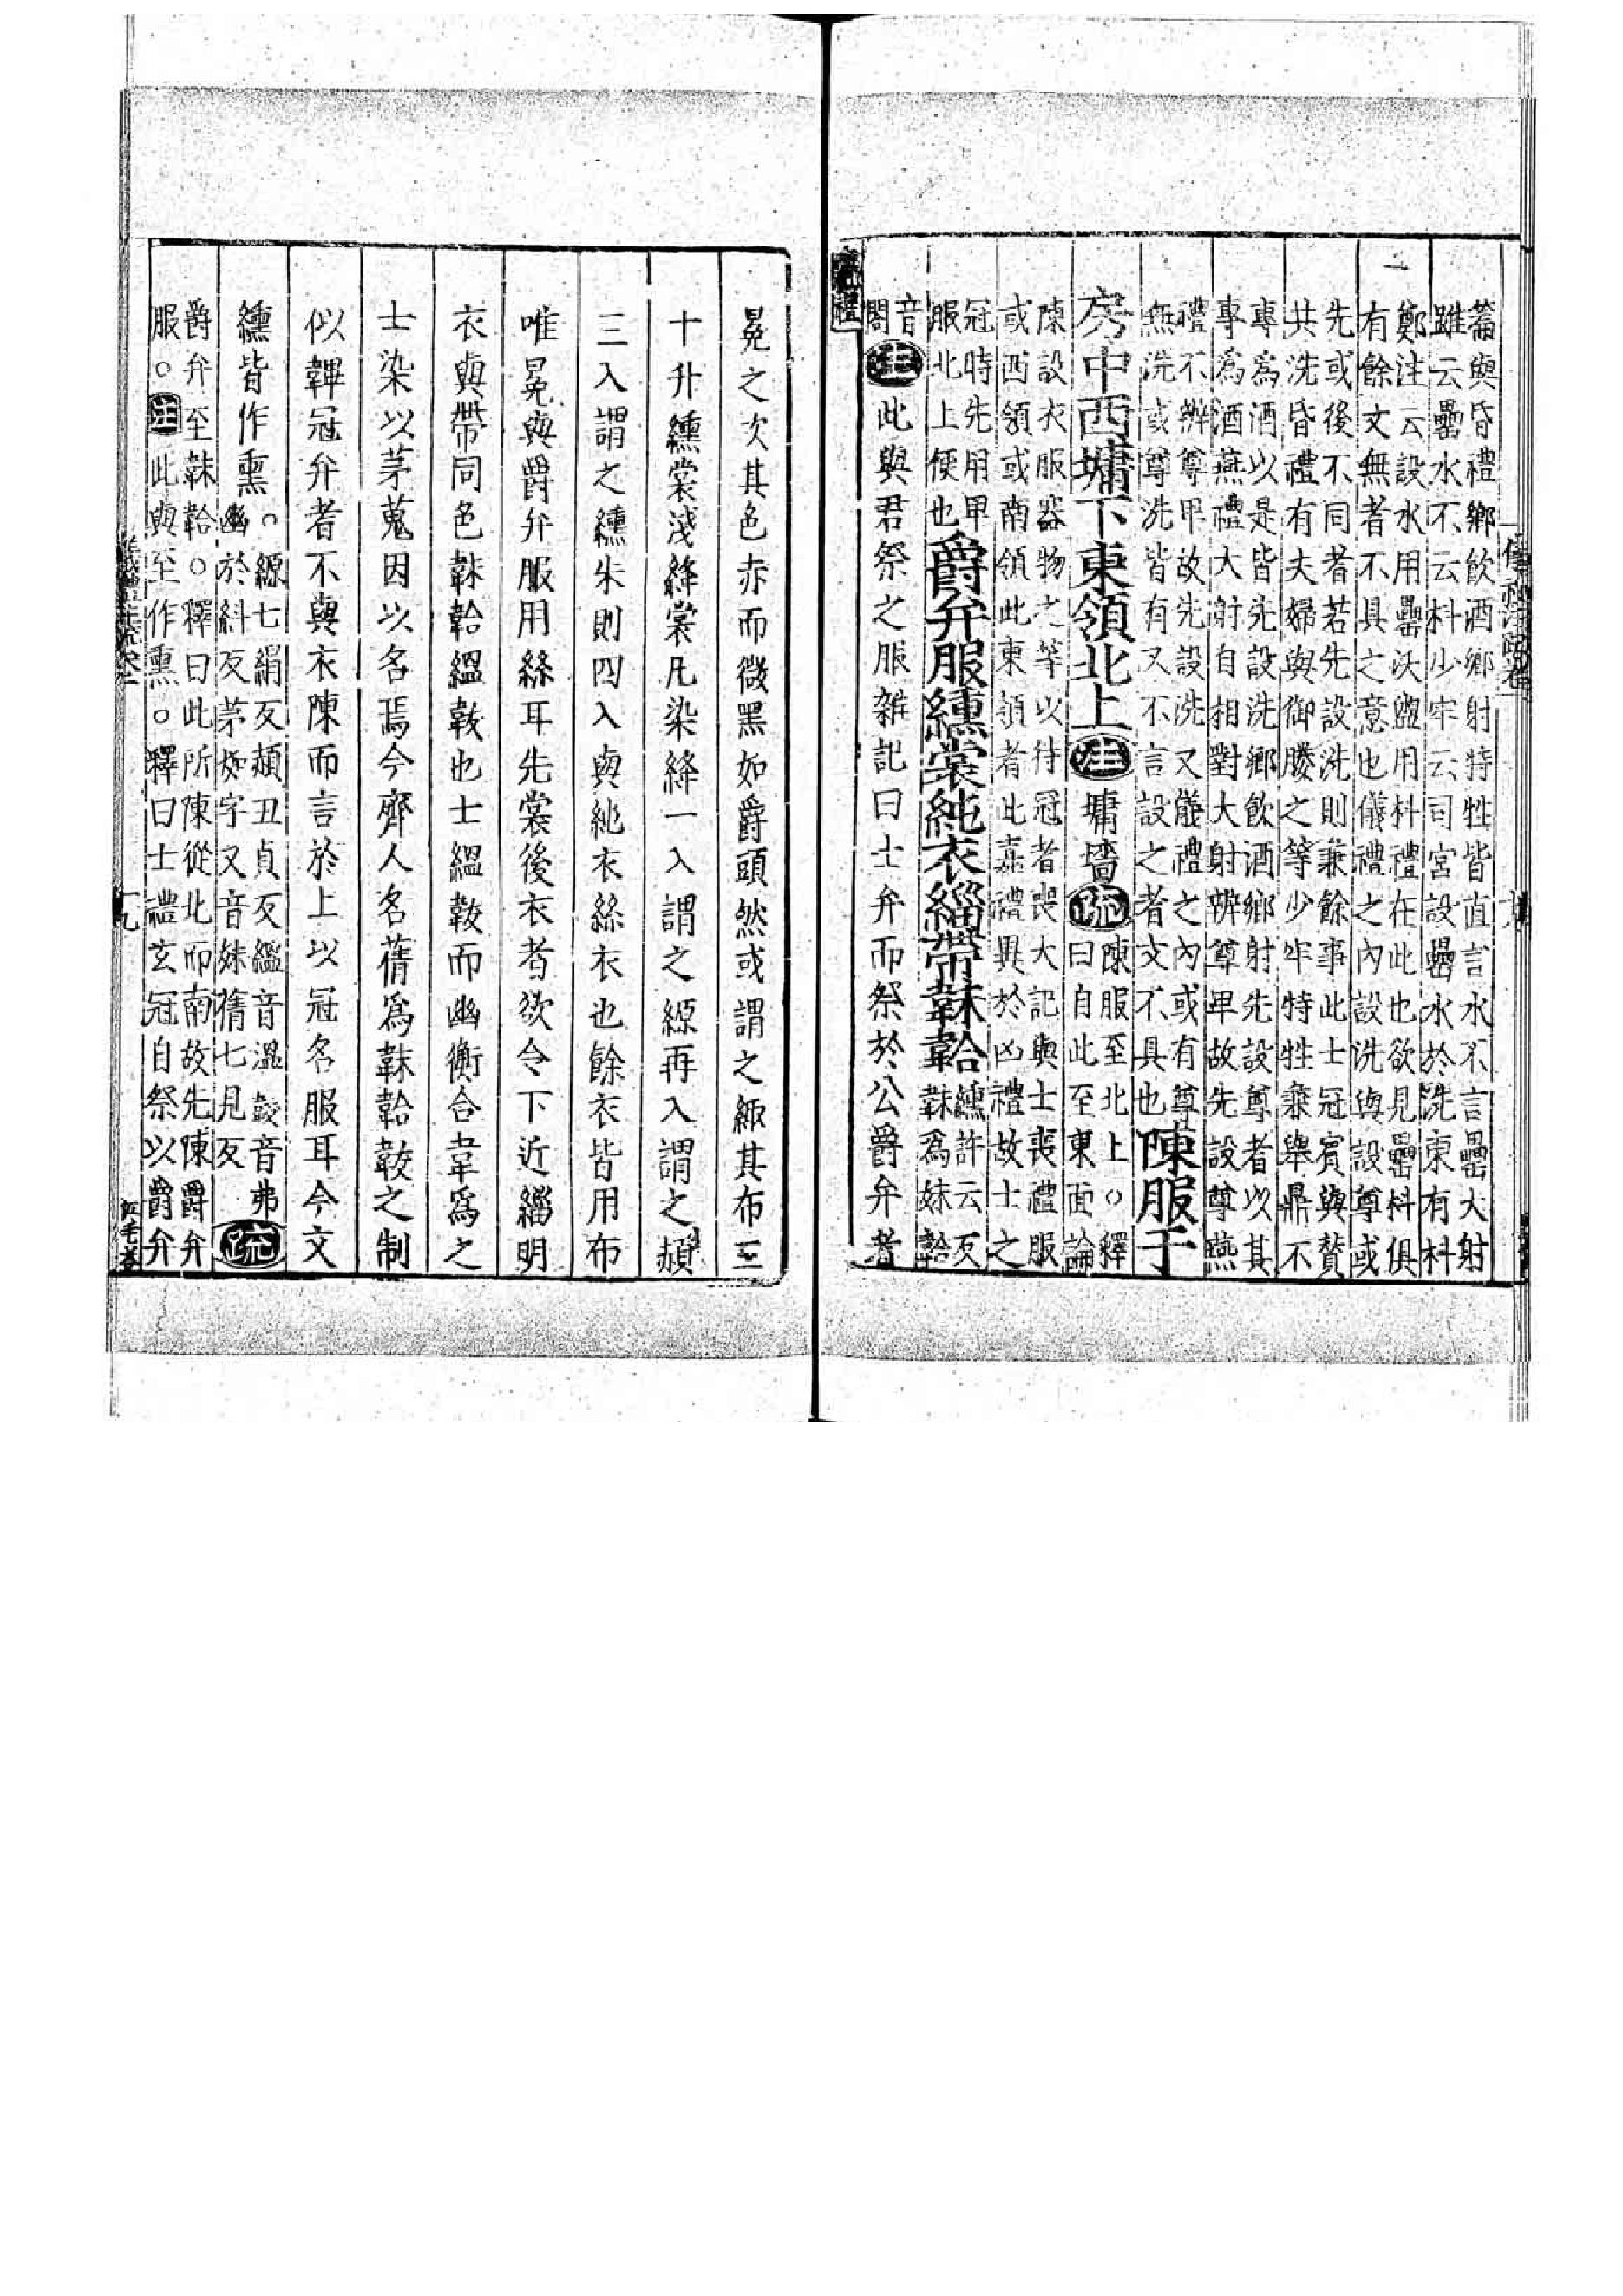 篇與昏禮鄉飲酒鄉射特牲皆直言水不言罍大射
雖云罍水不云枓少牢云司宮設罍水於洗東有枓
鄭注云設水用罍沃盥用枓禮在此也欲見罍枓俱
有餘文無者不具之意也儀禮之內設洗與設尊或
先或後不同者若先設洗則兼餘事此士冠賓與贊
共洗昏禮有夫婦與御媵之等少牢特牲兼舉鼎不
專爲酒以是皆先設洗鄉飲酒鄉射先設尊者以其
專爲酒燕禮大射自相對大射辨尊卑故先設尊燕
禮不辨尊卑故先設洗又儀禮之內或有尊
無洗或尊洗皆有又不言設之者文不具也
陳服于
房中西墉下東領北上 注 墉墻 疏
陳服至北上○釋
曰自此至東面論
陳設衣服器物之等以待冠者喪大記與士喪禮服
或西領或南領此東領者此嘉禮異於凶禮故士之
冠時先用卑
服北上便也
爵弁服纁裳純衣緇帶韎韐
纁許云反
韎爲妹韐
音
閤
注 此與君祭之服雜記曰士弁而祭於公爵弁者
冕之次其色赤而微黑如爵頭然或謂之緅其布三
十升纁裳淺絳裳凡染絳一入謂之縓再入謂之赬
三入謂之纁朱則四入與純衣絲衣也餘衣皆用布
唯冕與爵弁服用絲耳先裳後衣者欲令下近緇明
衣與帶同色韎韐縕韍也士縕韍而幽衡合韋爲之
士染以茅蒐因以名焉今齊人名蒨爲韎韐韍之制
似韠冠弁者不與衣陳而言於上以冠名服耳今文
纁皆作熏○
縓七絹反赬丑貞反縕音溫韍音弗
幽於糾反茅如字又音妹蒨七見反
疏
爵弁至韎韐○釋曰此所陳從北而南故先陳爵弁
服○注此與至作熏○釋曰士禮玄冠自祭以爵弁